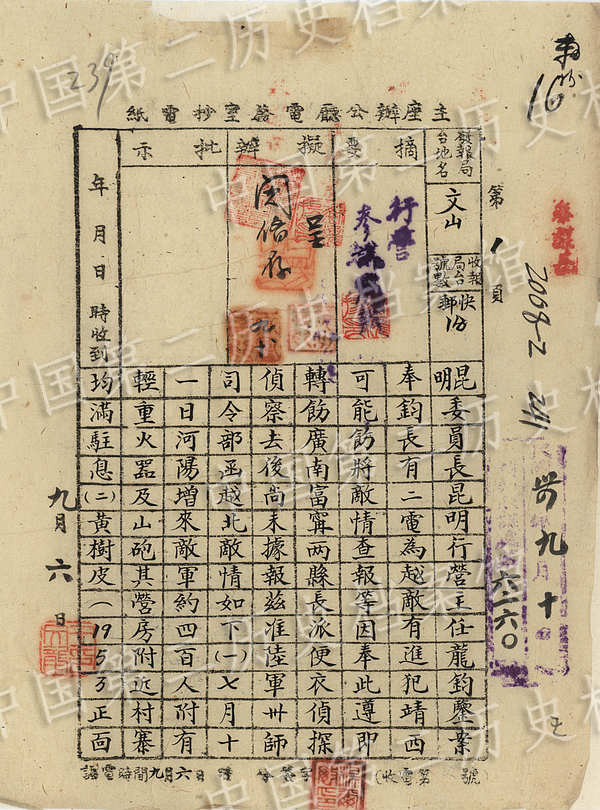 239
16
主座辦公廳電務室抄電紙
第1頁
發報局台地名
文山
收報局台號數
快郵1份
摘要
行營
擬辦
呈
閱備存
九、十
批示
年月日時收到
昆明委員長昆明行營主任龍鈞鑒案
奉鈞長有二電為越敵有進犯靖西
可能飭將敵情查報等因奉此遵即
轉飭廣南富甯兩縣長派便衣偵探
偵察去後尚未據報茲准陸軍卅師
司令部函越北敵情如下(一)七月十
一日河陽增來敵軍約四百人附有
輕重火器及山砲其營房附近村寨
均滿駐息(二)黃樹皮(1953正面
2068-2 241
卅九月十日
六一六〇
九月六日
譯電時間九月六日
收電第號
中国第二历史档案馆